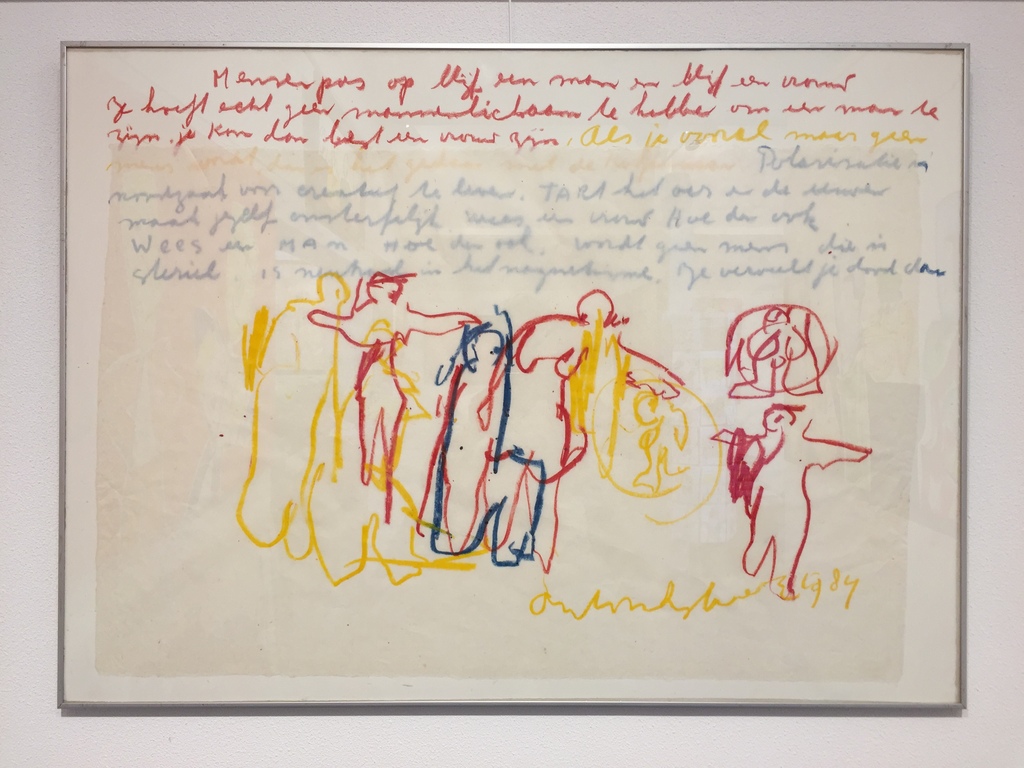 Mensen pas op blijf een man en blijf een vrouw
Je hoeft echt geen mannenlichaam te hebben om een man te
zijn. je kan dan best een vrouw zijn. Als je vooral maar geen
mens wordt Polarisatie is
noodzaak voor creatief te leven. TART het oer en de
maak jezelf onsterfelijk wees een vrouw Hoe dan ook
Wees een MAN Hoe dan ook. wordt geen mens die is
steriel. is neutraal in het magnetisme. Je verveelt je dood dan
1984